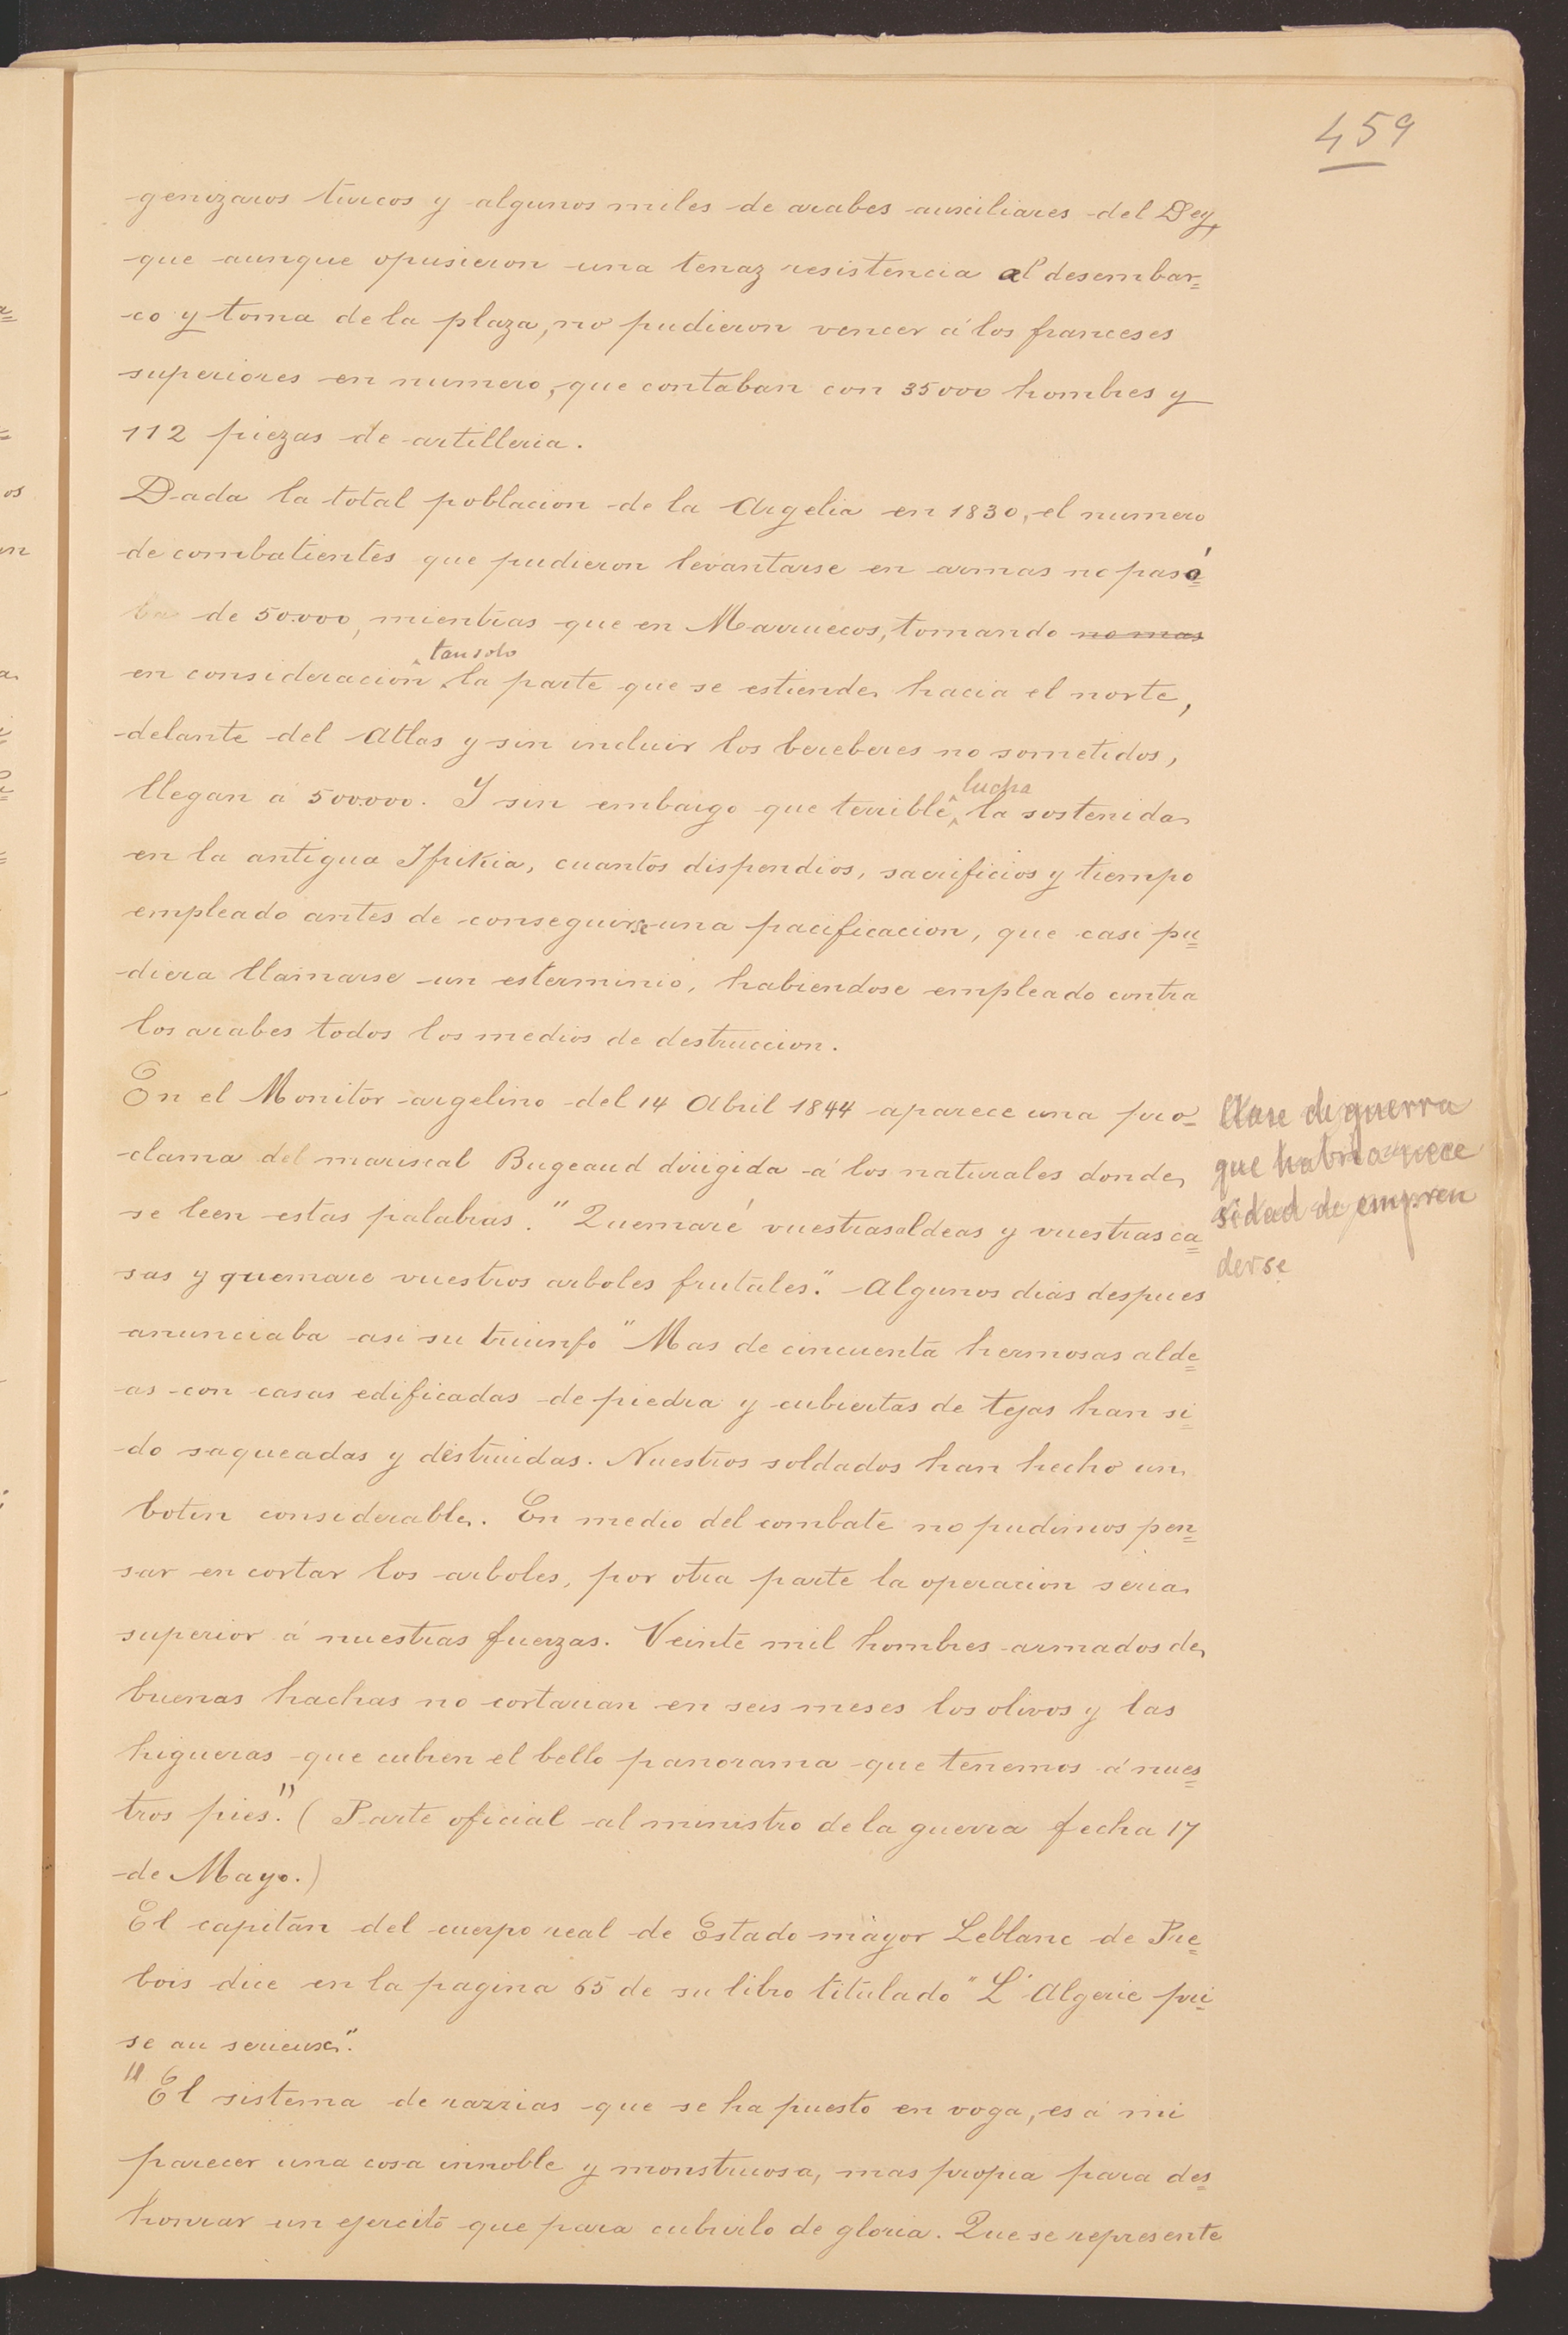 459
genizaros turcos y algunos miles de arabes auxiliares del Dey,
que aunque opusieron una tenaz resistencia al desembar=
co y toma de la plaza, no pudieron vencer á los franceses
superiores en numero, que contaban con 35000 hombres y
112 piezas de artilleria.
Dada la total poblacion de la Argelia en 1830, el numero
de combatientes que pudieron levantarse en armas no pasó
ba de 50.000, mientras que en Marruecos, tomando no mas
tan solo
en consideracion la parte que se estiende hacia el norte,
delante del Atlas y sin incluir los bereberes no sometidos,
lucha
llegan á 500.000. Y sin embargo que terrible la sostenida
en la antigua Ifrikia, cuantos dispendios, sacrificios y tiempo
empleado antes de conseguirse una pacificacion, que casi pu=
diera llamarse un esterminio, habiendose empleado contra
los arabes todos los medios de destruccion.
En el Monitor argelino del 14 Abril 1844 aparece una pro=
clama del mariscal Bugeaud dirigida á los naturales donde
se leen estas palabras. "Quemaré vuestras aldeas y vuestras ca=
sas y quemare vuestros arboles frutales." Algunos dias despues
anunciaba asi su triunfo "Mas de cincuenta hermosas alde=
as con casas edificadas de piedra y cubiertas de tejas han si=
do saqueadas y destruidas. Nuestros soldados han hecho un
botin considerable. En medio del combate no pudimos pen=
sar en cortar los arboles, por otra parte la operacion seria
superior á nuestras fuerzas. Veinte mil hombres armados de
buenas hachas no cortarian en seis meses los olivos y las
higueras que cubren el bello panorama que tenemos á nues=
tros pies." (Parte oficial al ministro de la guerra fecha 17
de Mayo.)
El capitán del cuerpo real de Estado mayor Leblanc de Pre=
bois dice en la pagina 65 de su libro titulado "L'Algerie pri=
se au serieuse".
"El sistema de razzias que se ha puesto en voga, es á mi
parecer una cosa innoble y monstruosa, mas propia para des=
honrar un ejercito que para cubrirlo de gloria. Que se represente
Clase de guerra
que habria nece
sidad de empren
derse